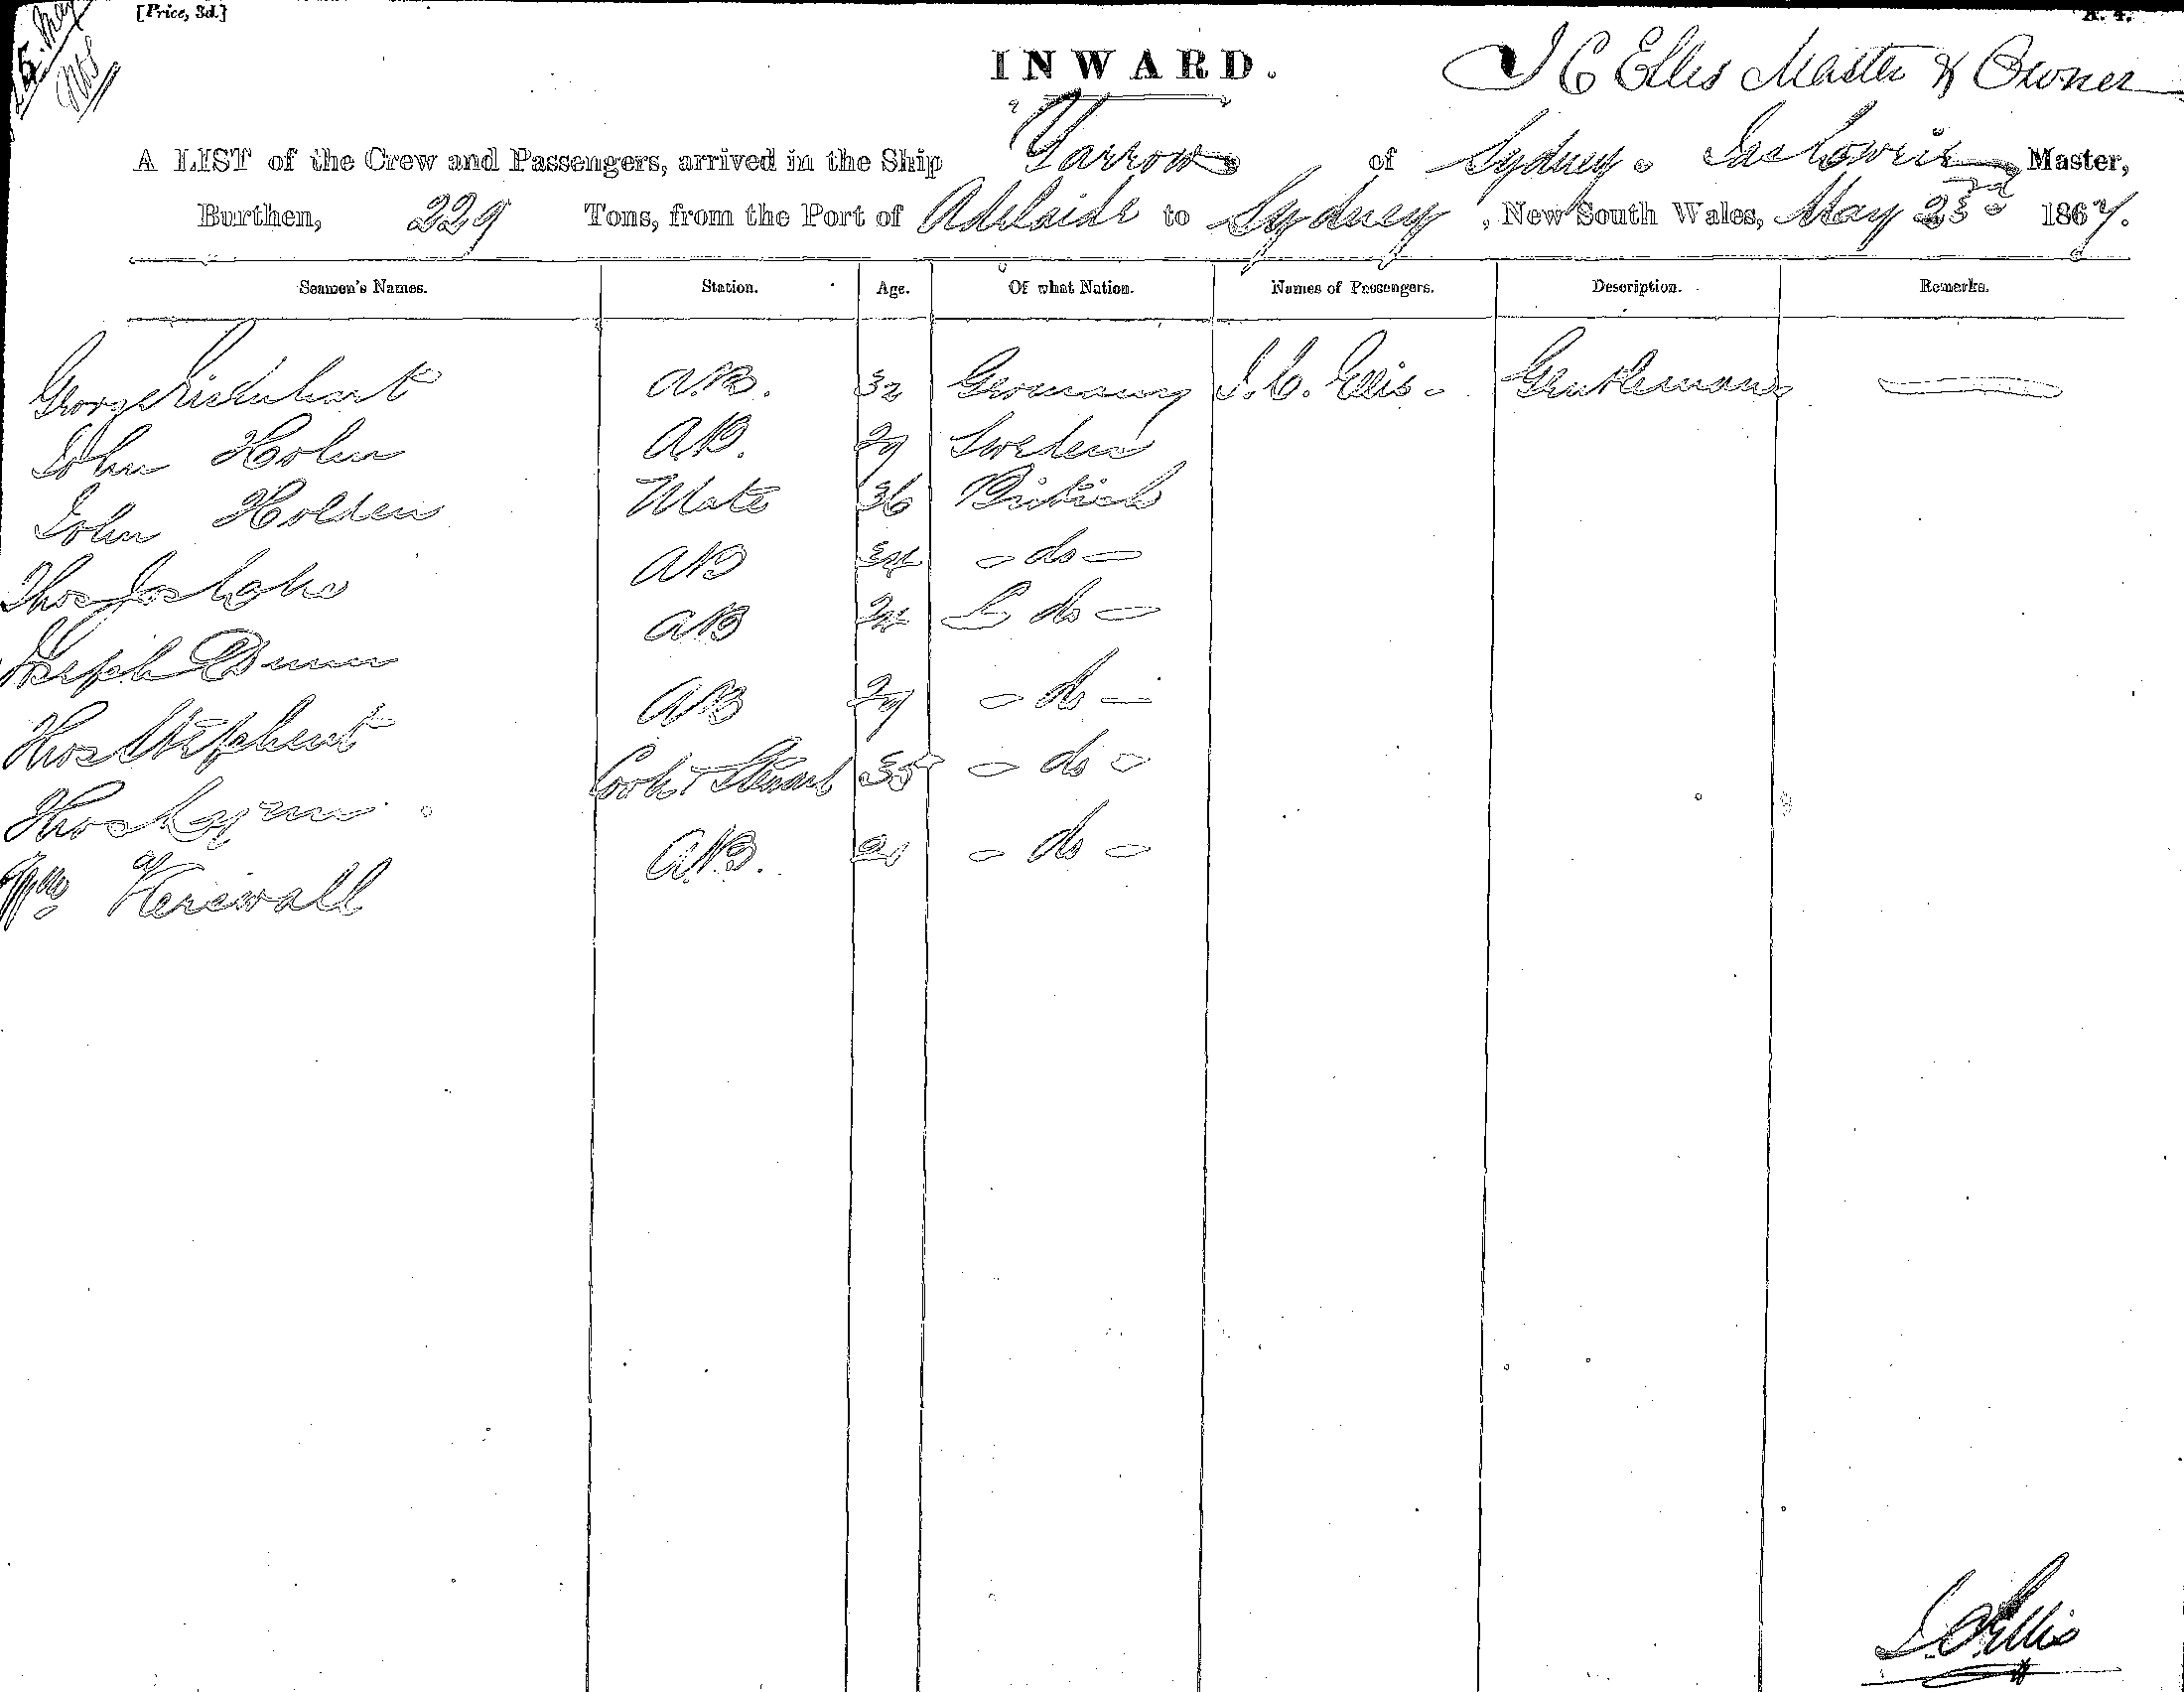 [Price, 3d.]
A. 4.
25. May
INWARD.
J C Ellis Master & Owner
A LIST of the Crew and Passengers, arrived in the Ship Yarrow of Sydney. Jas Lowrie Master,
Burthen, 229 Tons, from the Port of Adelaide to Sydney, New South Wales, May 23rd 1867.
Seamen's Names. Station. Age. Of what Nation. Names of Passengers. Description. Remarks.
George A.B. 32 Germany J. C. Ellis. Gentleman
John Holm A.B. 29 Sweden
John Holden Mate 36 British
Thos Jos AB 34 - do -
Joseph Dunn AB 24 - do -
Thos Stephens AB 29 - do -
Thos Cook & Steward 35 - do -
Wm A.B. 21 - do -
J. C. Ellis